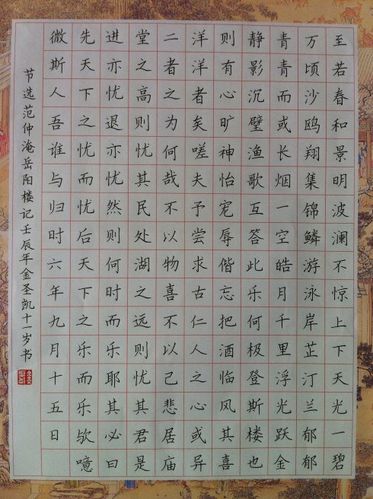 至若春和景明波澜不惊上下天光一碧
万顷沙鸥翔集锦鳞游泳岸芷汀兰郁郁
青青而或长烟一空皓月千里浮光跃金
静影沉璧渔歌互答此乐何极登斯楼也
则有心旷神怡宠辱偕忘把酒临风其喜
洋洋者矣嗟夫予尝求古仁人之心或异
二者之为何哉不以物喜不以己悲居庙
堂之高则忧其民处湖之远则忧其君是
进亦忧退亦忧然则何时而乐耶其必曰
先天下之忧而忧后天下之乐而乐欤噫
微斯人吾谁与归时六年九月十五日
节选范仲淹岳阳楼记壬辰年金圣凯十一岁书